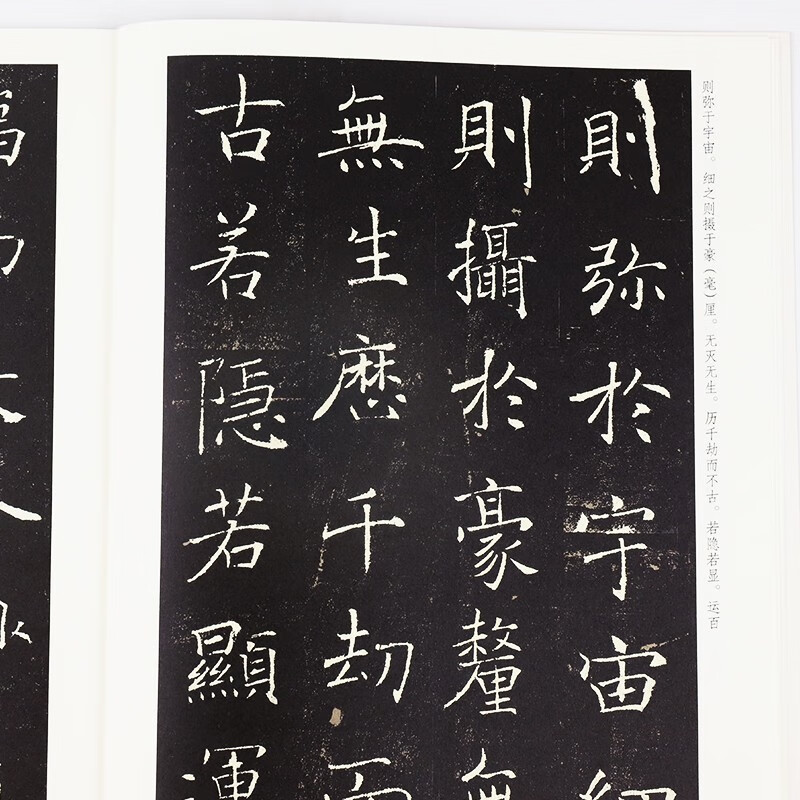 则弥于宇宙。细之则摄于豪（毫）厘。无灭无生。历千劫而不古。若隐若显。运百
則弥於宇宙細
則攝於豪釐無
無生歷千劫而
古若隱若顯運